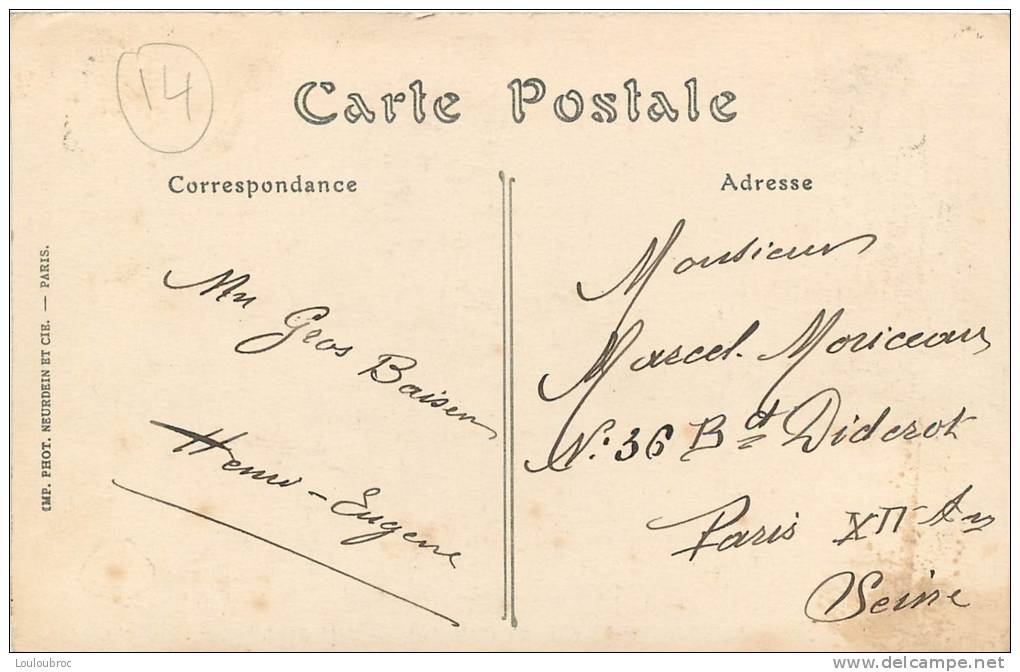 14
Carte Postale
Correspondance
Adresse
IMP. PHOT. NEURDEIN ET CIE. — PARIS.
Un Gros Baiser
Henri-Eugene
Monsieur
Marcel. Moriceau
N: 36 Bd Diderot
Paris XII Arr
Seine
Louloubroc
www.delcampe.net